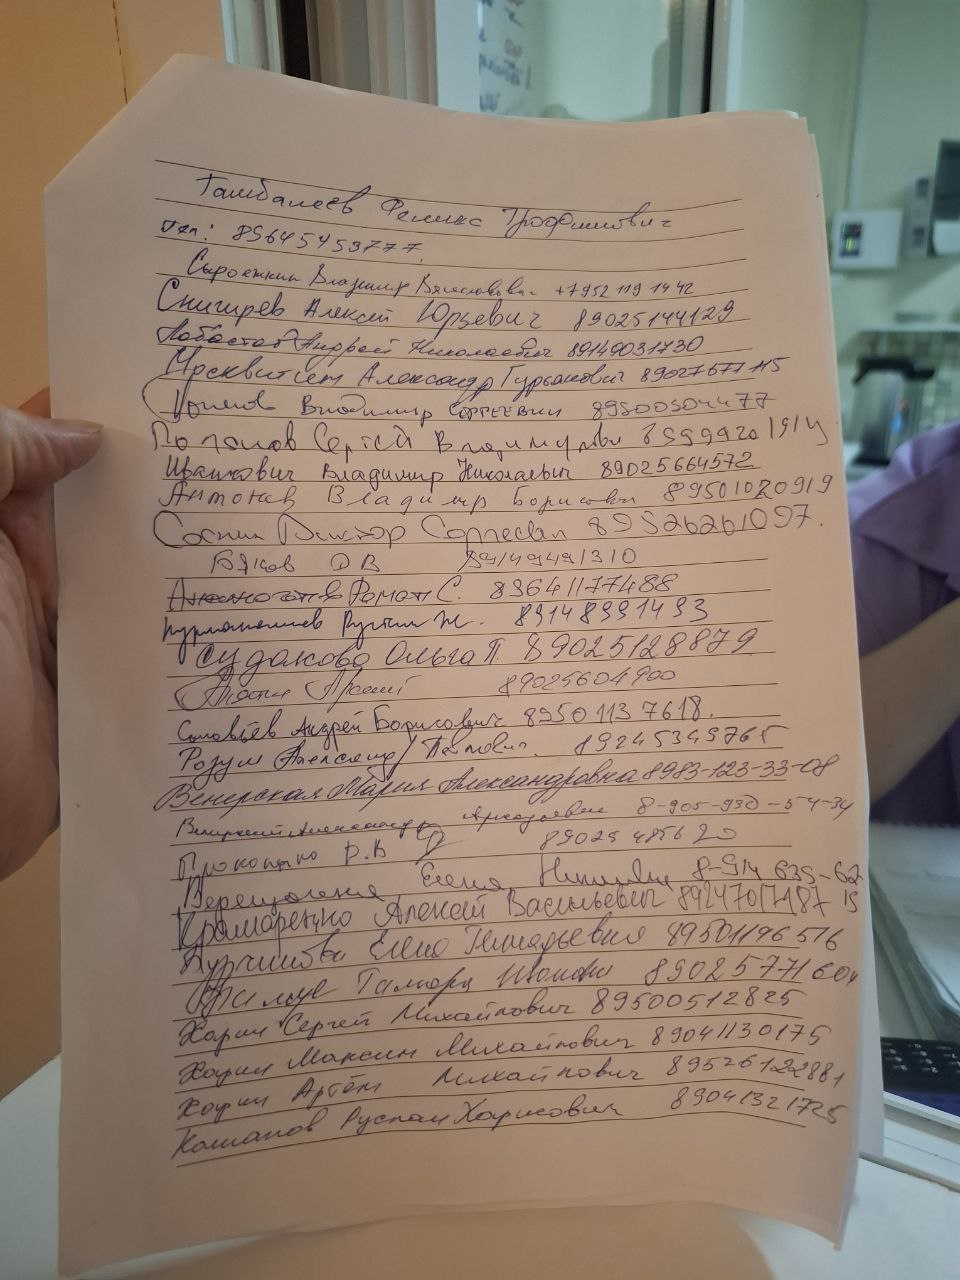 Гамбалеев Феликс Трофимович
тел: 89645453777
Сыроежкин Владимир Вячеславович +7952 119 14 42
Снигирев Алексей Юрьевич 89025144129
Лобастов Андрей Николаевич 89149031730
Александр Гурьянович 89027677115
Владимир Сергеевич 89500504477
Потапов Сергей Владимирович
Иванкович Владимир Николаевич 89025664572
Антонов Владимир Борисович 89501020919
Соснин Виктор Сергеевич 89526261097.
Бяков ДВ 89149491310
Роман С. 89641177488
89148991493
Судакова Ольга П. 89025128879
89025604900
Соловьёв Андрей Борисович 89501137618.
Розум Александр Павлович. 89245349765
Венерская Мария Александровна 8983-123-33-08
Александр Аркадьевич 8-905-930-54-34
Прокопько Р.В 89025485620
Елена 8-914 635-62
Крамаренко Алексей Васильевич 89247017487 15
Елена Геннадьевна 89501196516
Тамара Ивановна 89025771604
Харин Сергей Михайлович 89500512825
Харин Максим Михайлович 89041130175
Харин Артём Михайлович 89526122881
Колпаков Руслан Харисович 89041321725